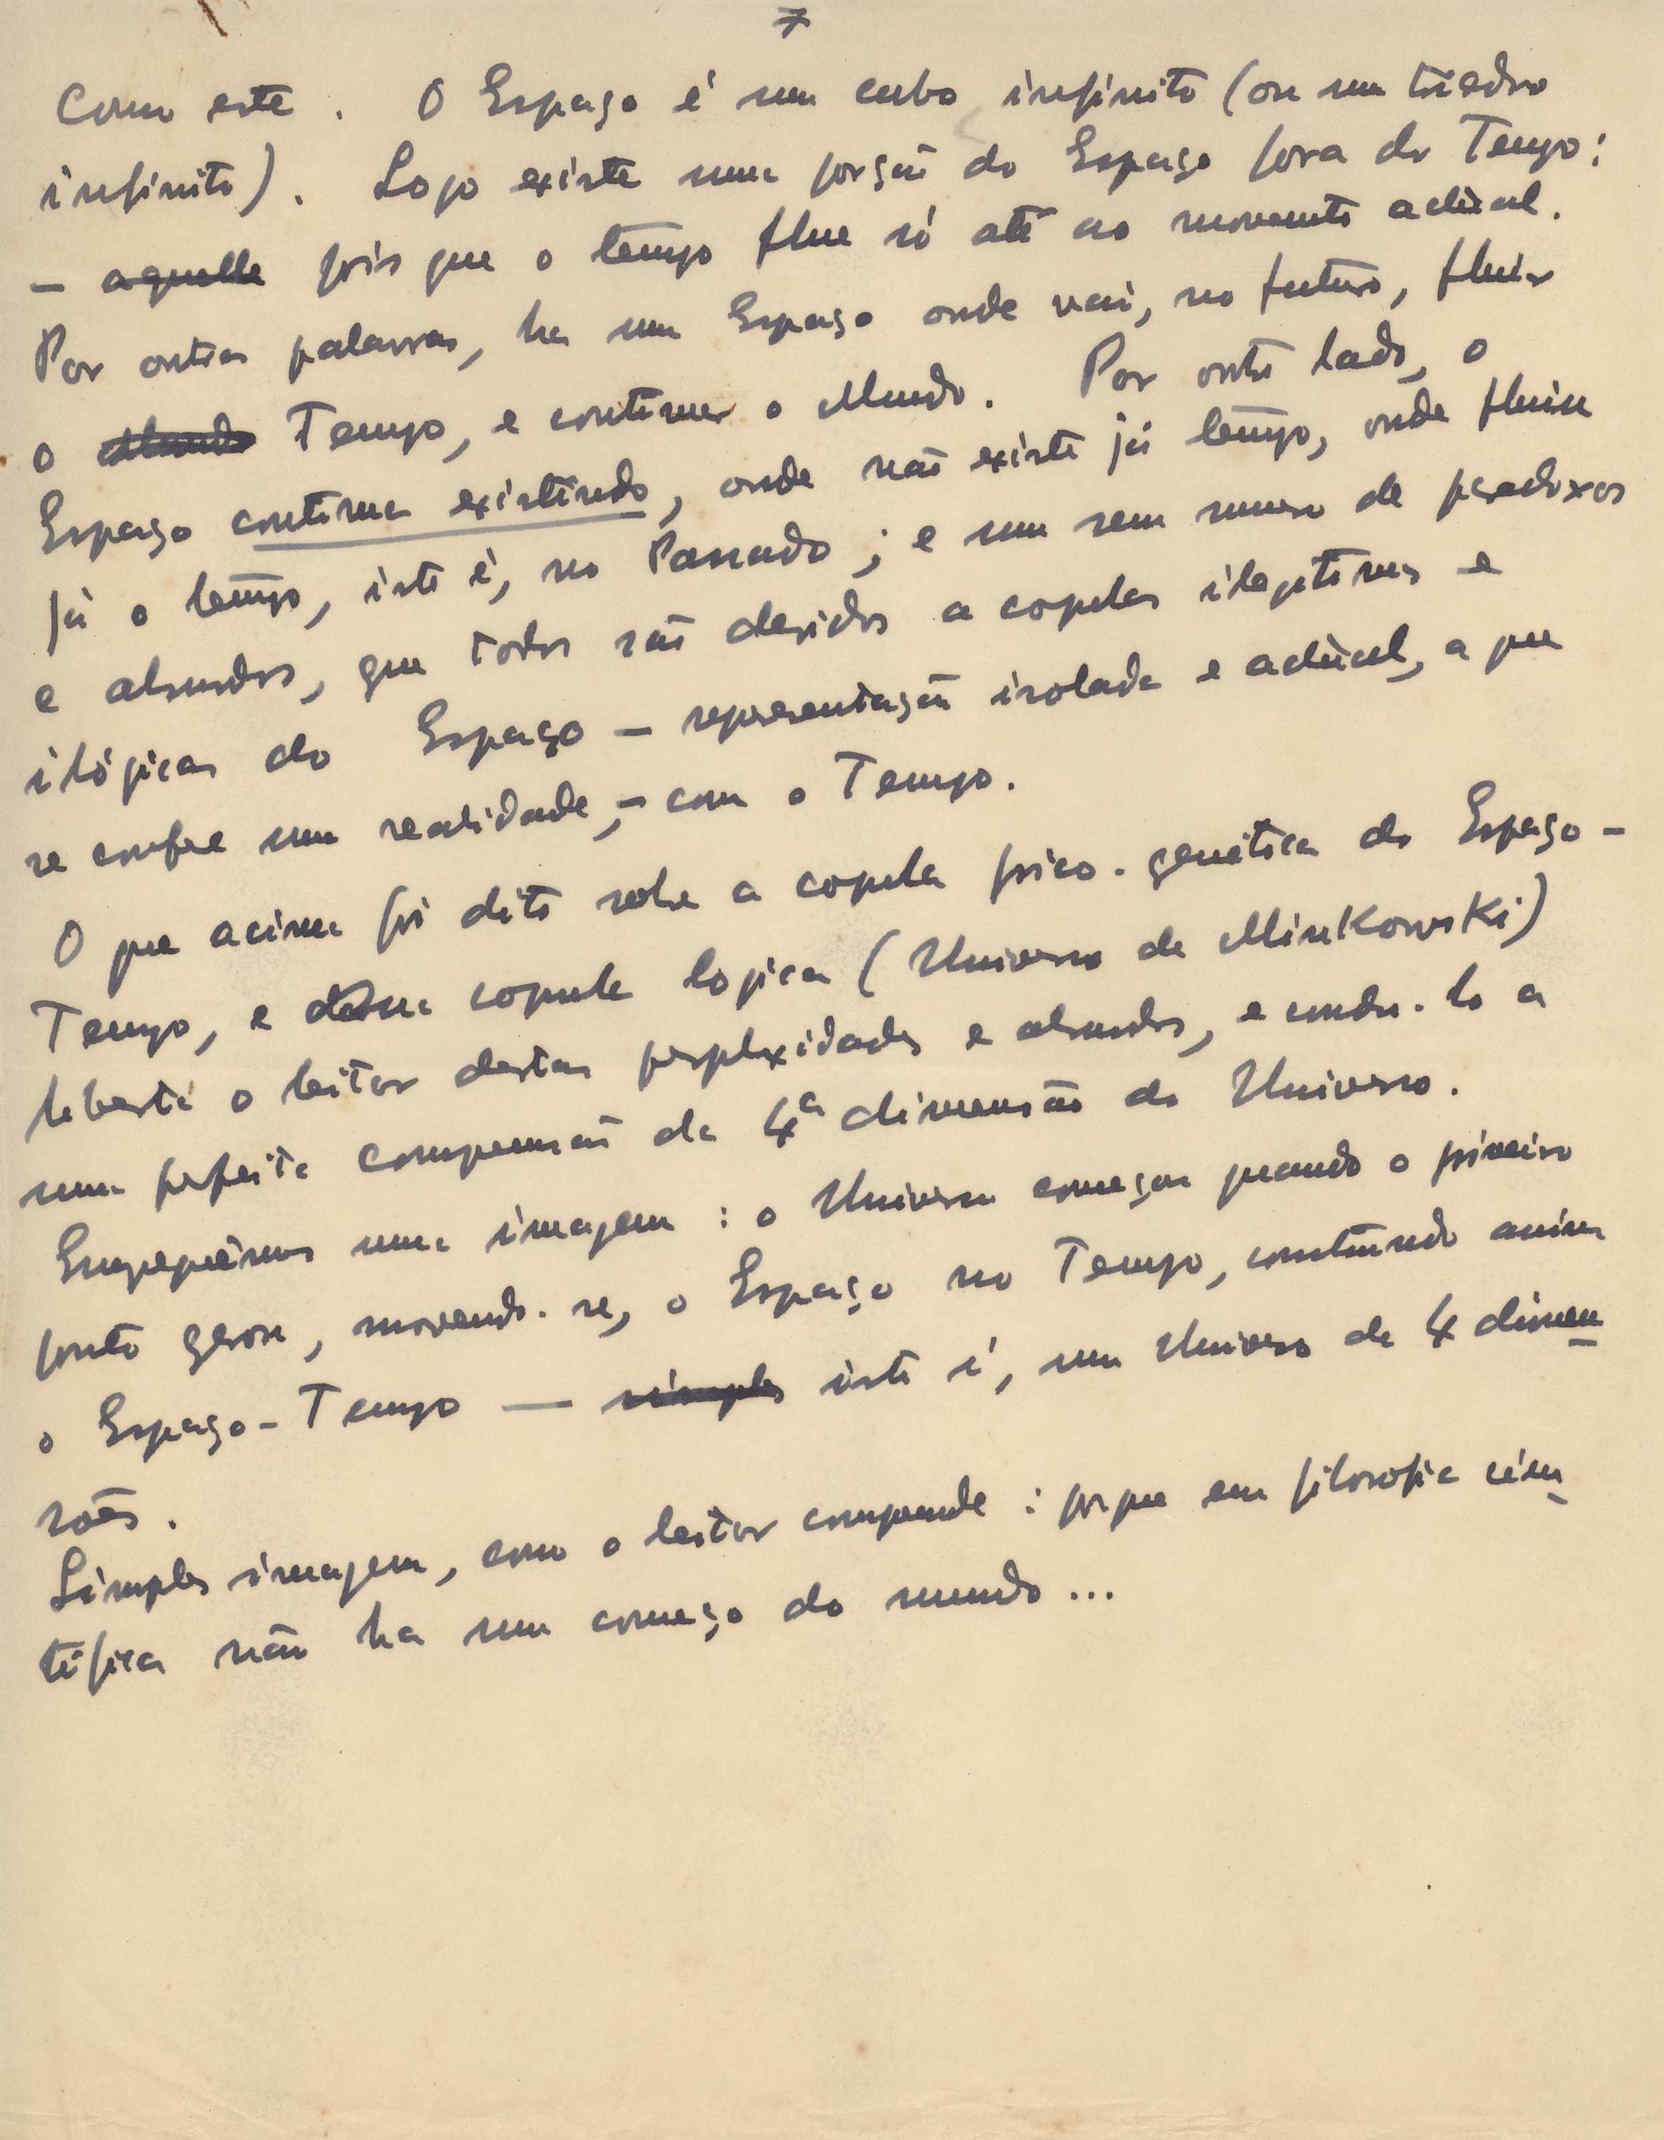 7
Como este. O Espaço é um cubo infinito (ou um triedro
infinito). Logo existe uma porção do Espaço fora do Tempo:
– aquelle pois que o tempo flue só até ao momento actual.
Por outras palavras, ha um Espaço onde vai, no futuro, fluir
o Mundo Tempo, e continuar o Mundo. Por outro lado, o
Espaço continua existindo, onde não existe já tempo, onde fluiu
já o tempo, isto é, no Passado; e um sem numero de paradoxos
e absurdos, que todos são devidos a copulas ilegitimas e
ilógicas do Espaço – representação isolada e actual, a que
se confere uma realidade, – com o Tempo.
O que acima foi dito sobre a copula psico-genética do Espaço-
Tempo, e dessa copula logica (Universo de Minkowski)
liberta o leitor destas perplexidades e absurdos, e conduz-lo a
uma perfeita compreensão da 4ª dimensão do Universo.
Empreguêmos uma imagem: o Universo começou quando o primeiro
ponto gerou, movendo-se, o Espaço no Tempo, constituindo assim
o Espaço-Tempo — simples isto é, um Universo de 4 dimen
sões.
Simples imagem, como o leitor compreende: porque em filosofia cien
tífica não ha um começo do mundo...